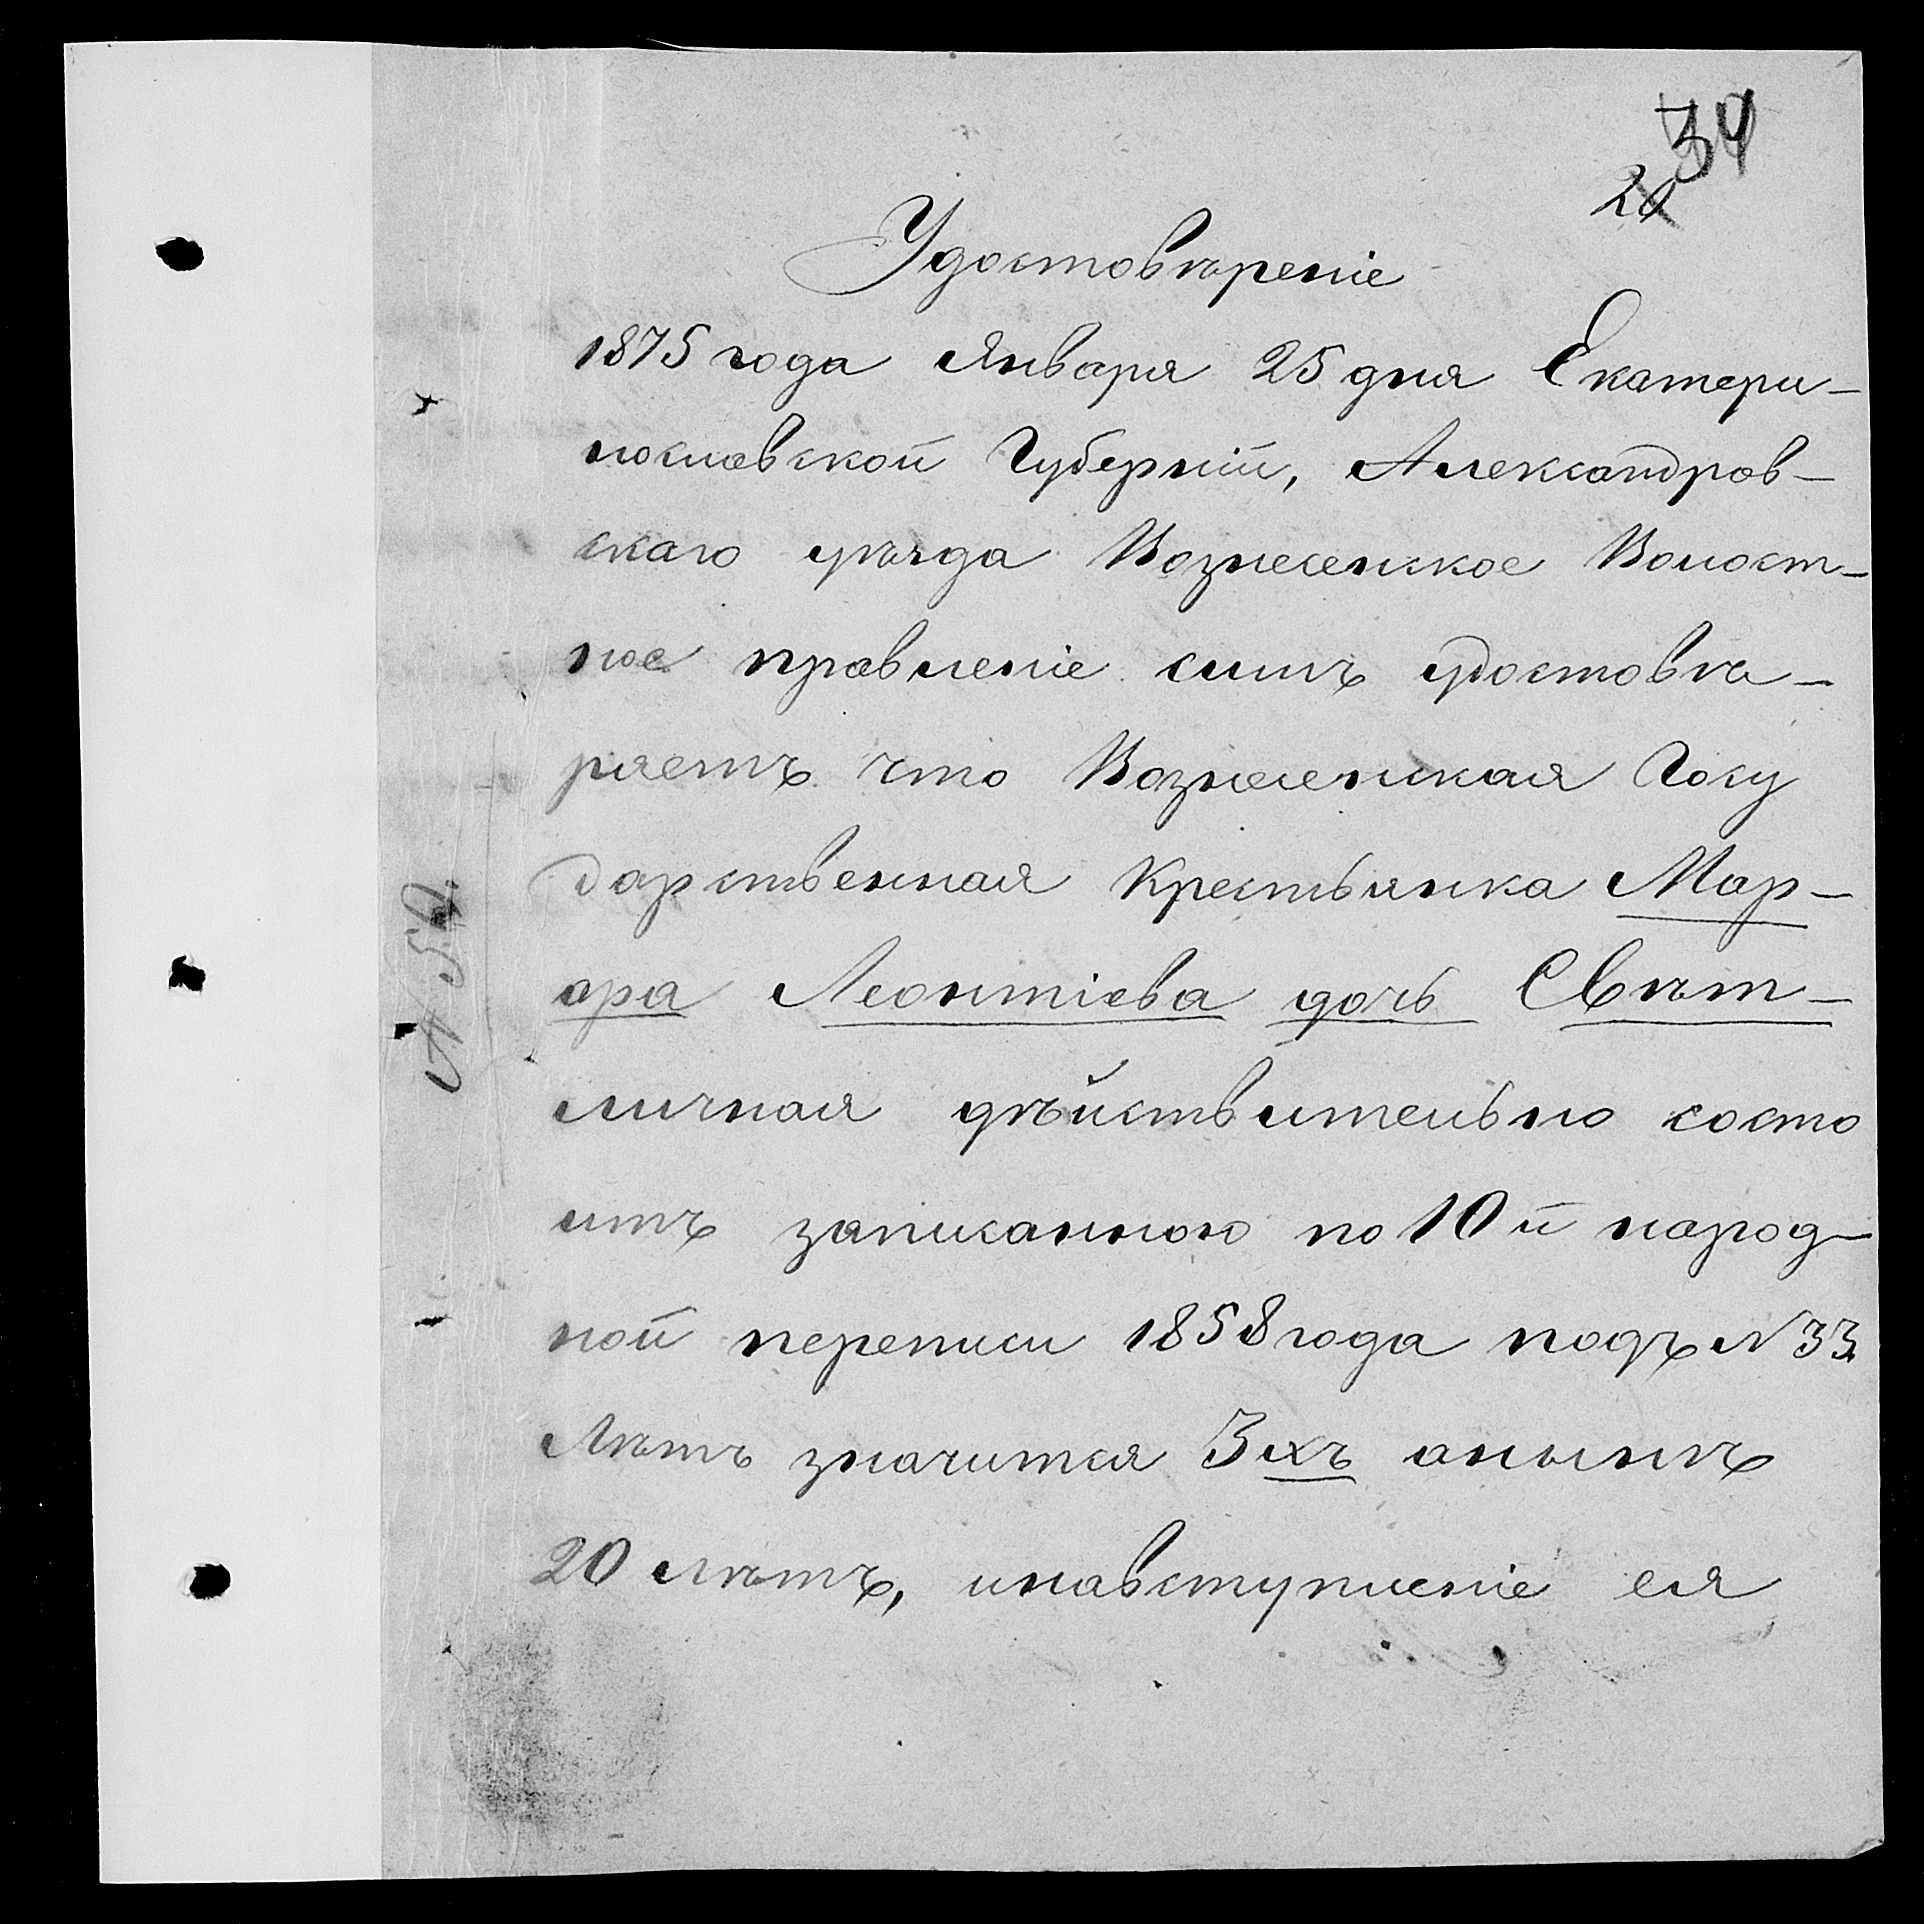 34
20
Удостовѣреніе
1875 года Января 25 дня Екатери-
нославской Губерніи, Александров-
скаго уѣзда Вознесенское Волост-
ное правленіе симъ удостовѣ-
ряетъ что Вознесенская Госу
дарственная Крестьянка Мар-
ара Леонтіева дочь Свѣт-
личная дѣйствительно состо
итъ записанною по 10й народ-
ной переписи 1858 года подъ N 33.
Лѣтъ значится 3ихъ анынѣ
20 лѣтъ, инавступленіе ея